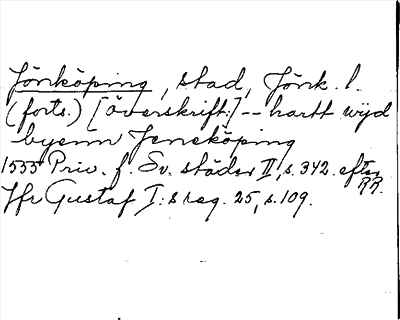 Jönköping, stad, Jönk. l.
(forts.) [Överskrift:] -- hartt wijd
byenn Jeneköping
1555 Priv. f. Sv. städer II, s. 342. efter
RR.
Jfr Gustaf I:s reg. 25, s. 109.